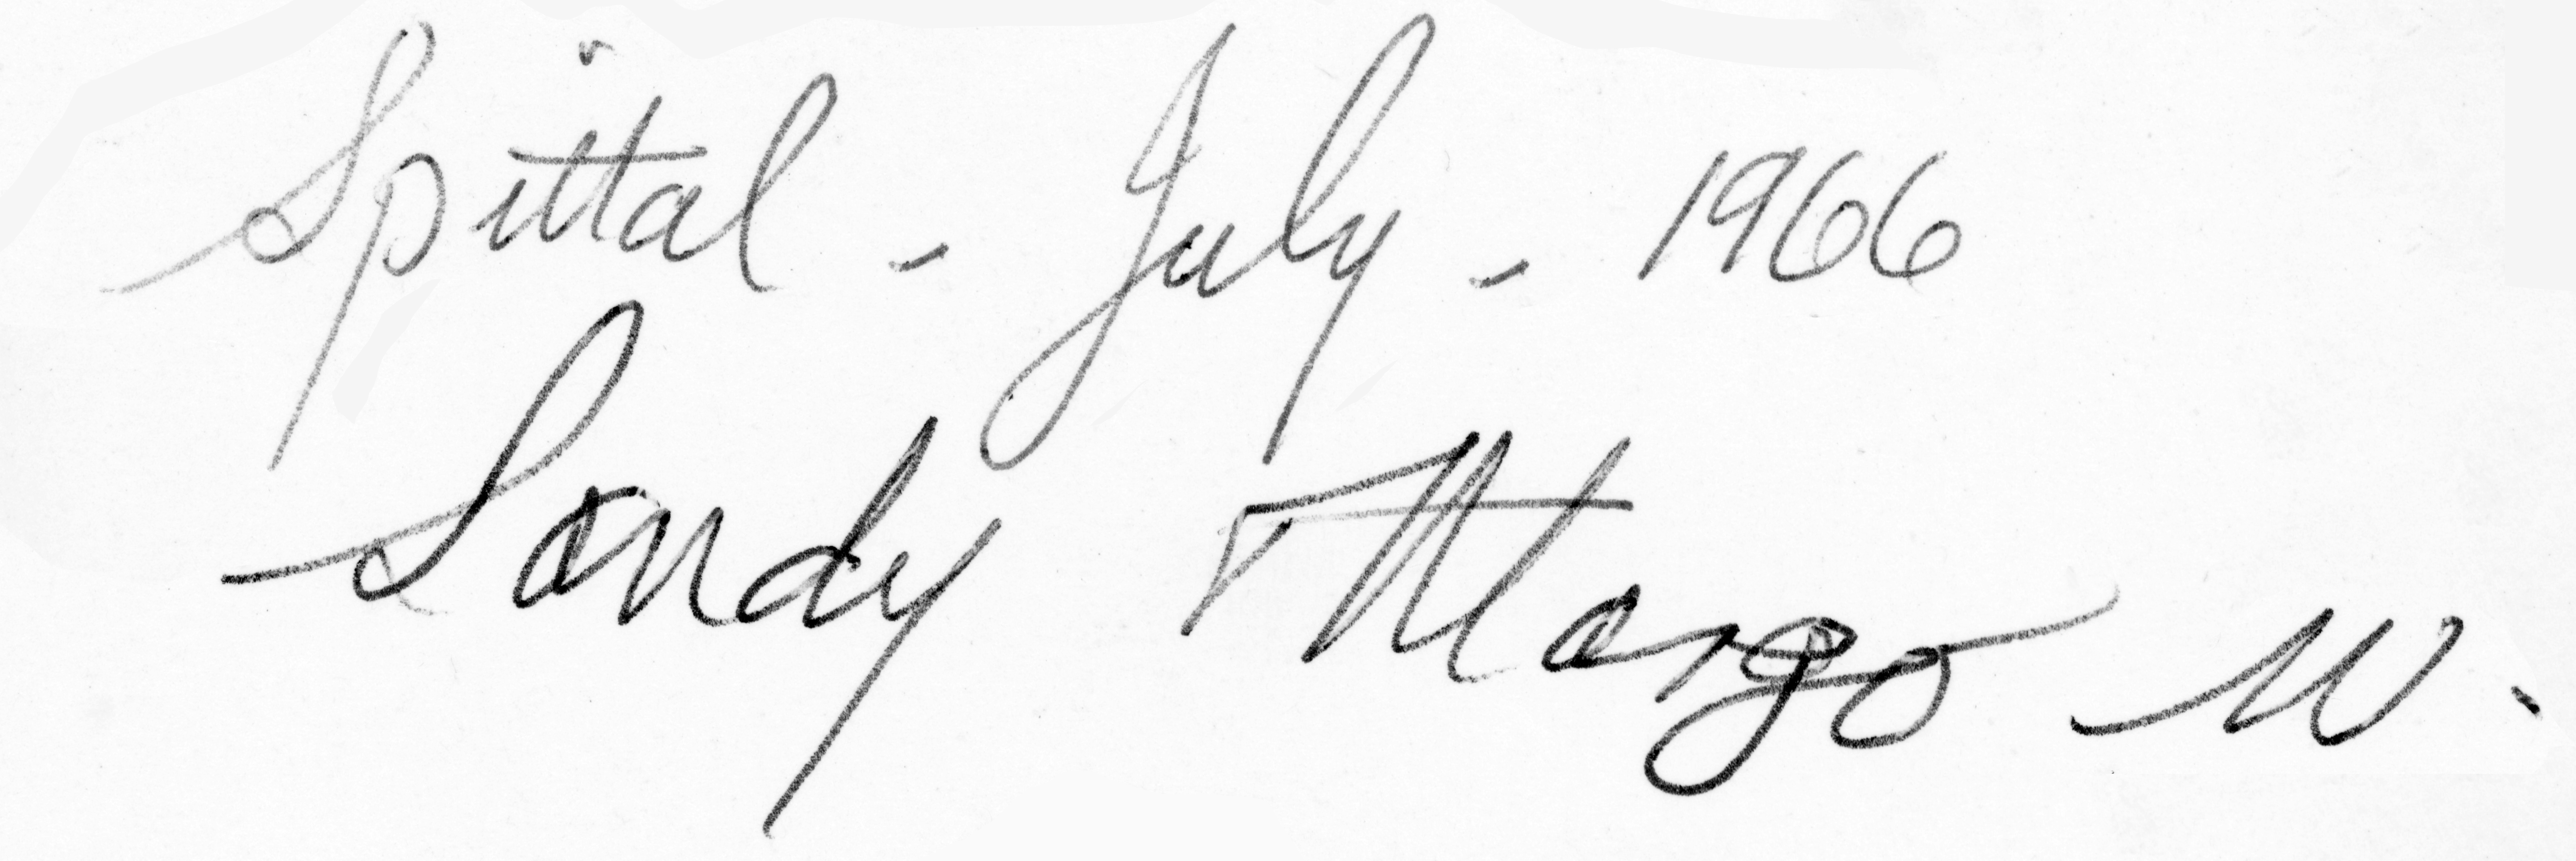 Spittal - July - 1966
Sandy Margo W.